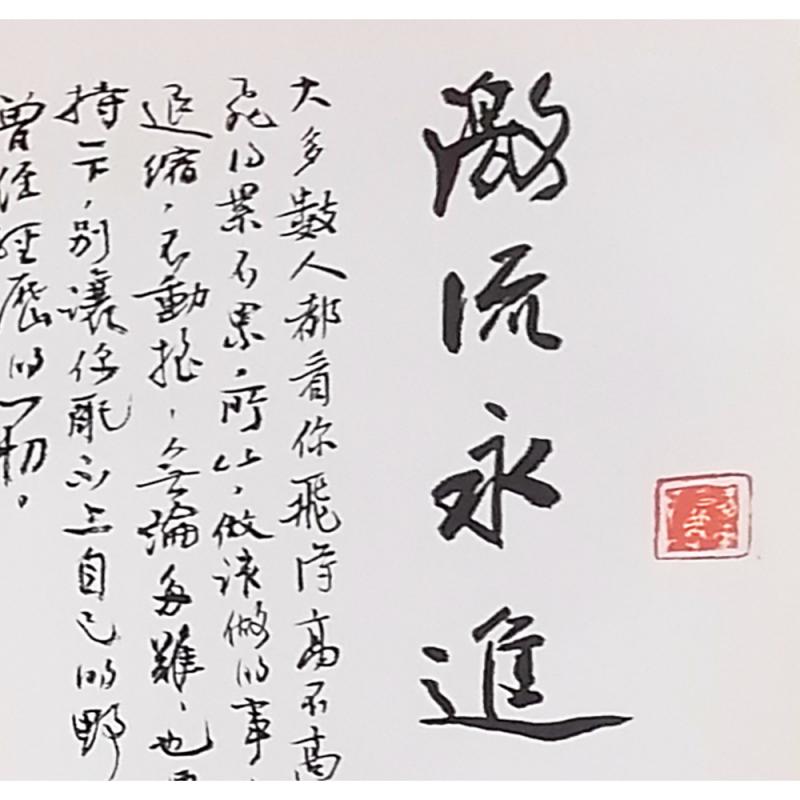 激流永進
大多數人都看你飛得高不高
飛的累不累，所以，做該做的事，
退缩，不動摇，無論多難，也
持下，别讓你配不上自己的野
曾经经歷的一切。